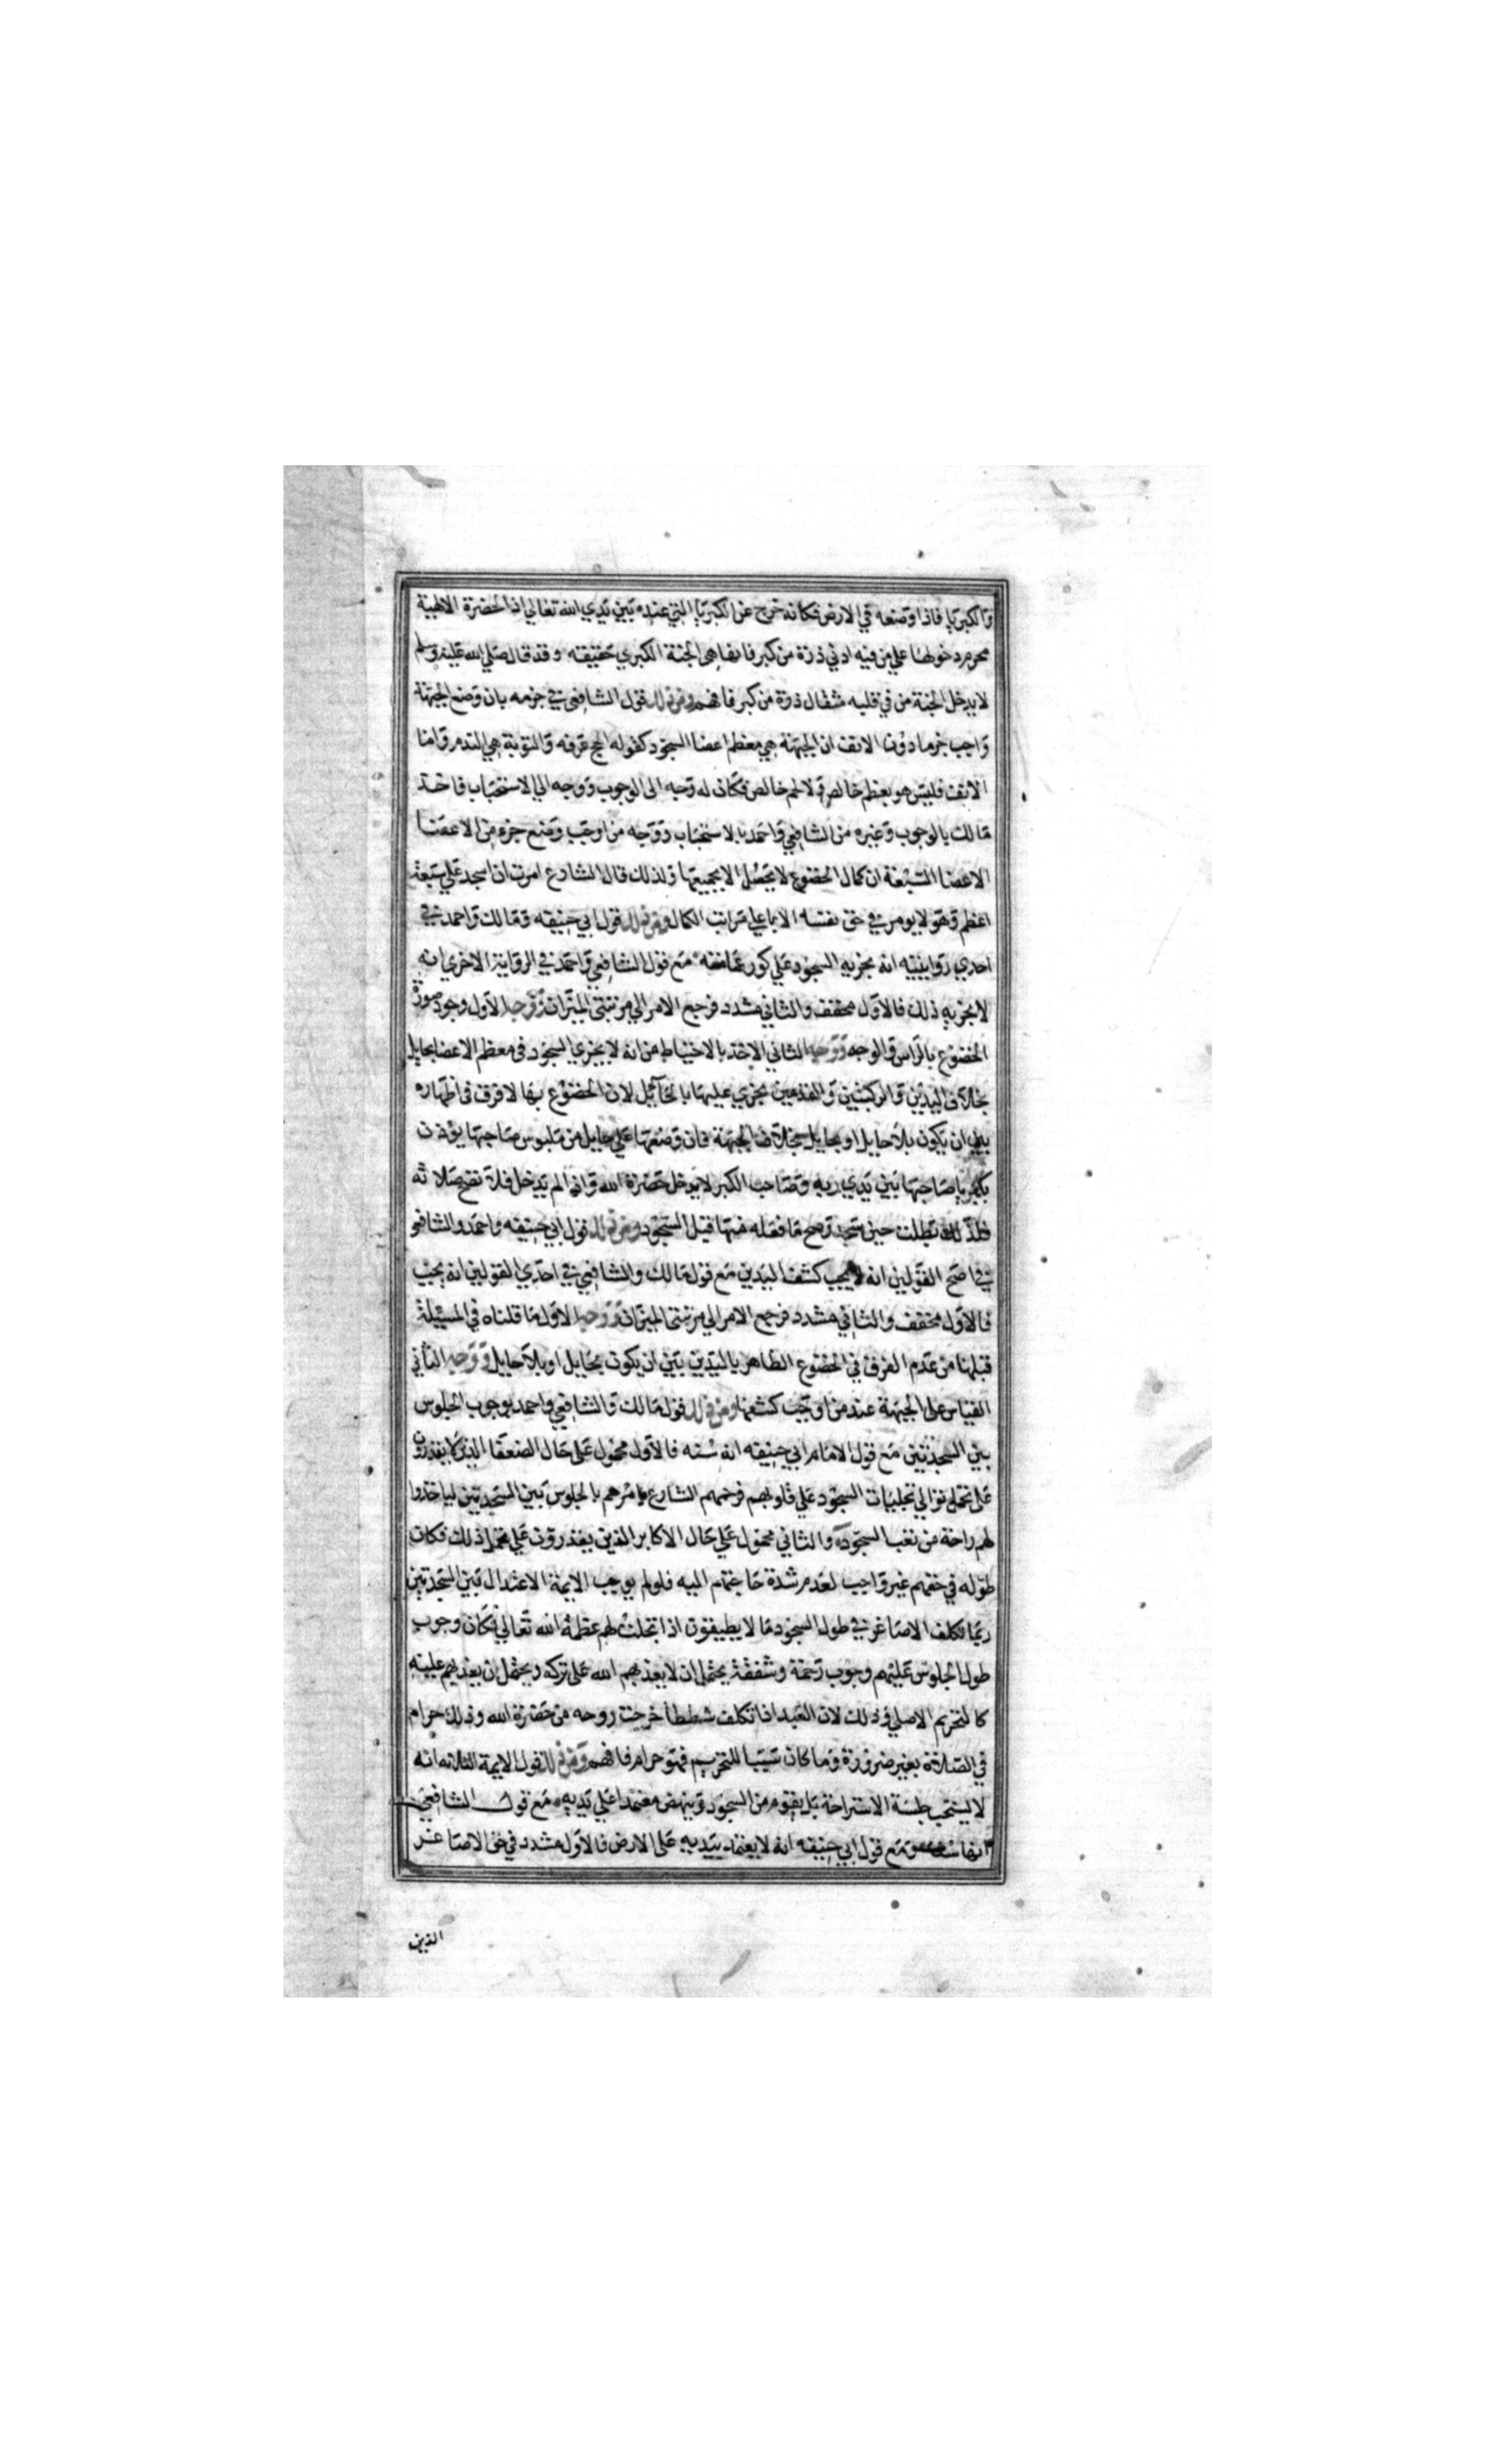 والكبريا فاذا وضعه في الارض فكانه خرج عن الكبريا التي عنده بين يدي الله تعالي اذ الحضرة الالهية
محرم دخولها علي من فيه ادني ذرة من كبر فانها هي الجنة الكبري حقيقته وقد قال صلي الله عليه وسلم
لا يدخل الجنة من في قلبه مثقال ذرة من كبر فافهم ومن ذلك قول الشافعي في جزمه بان وضع الجبهة
واجب جزما دون الانف ان الجبهة هي معظم اعضا السجود كقوله الحج عرفه والتوبة هي الندم واما
الانف فليس هو بعظم خالص ولا لحم خالص فكان له وجه الى الوجوب ووجه الي الاستحباب فاخذ
مالك بالوجوب وغيره من الشافعي واحمد بالاستحباب ووجه من اوجب وضع جزء من الاعضا
الاعضا السبعة ان كمال الخضوع لا يحصل الا بجميعها ولذلك قال الشارع امرت ان اسجد علي سبعة
اعظم وهو لا يومر في حق نفسه الا باعلي مراتب الكمال ومن ذلك قول ابي حنيفه ومالك واحمد في
احدي روايتيه انه يجزيه السجود علي كور عمامته مع قول الشافعي واحمد في الرواية الاخري انه
لا يجزيه ذلك فالاول مخفف والثاني مشدد فرجع الامر الي مرتبتي الميزان ووجه الاول وجود صورة
الخضوع بالراس والوجه ووجه الثاني الاخذ بالاحتياط من انه لا يجزي السجود في معظم الاعضا بحايل
بخلاف اليدين والركبتين والقدمين يجزي عليها بالحائل لان الخضوع بها لا فرق في اظهاره
بين ان يكون بلا حايل او بحايل بخلاف الجبهة فان وضعها علي حايل من ملبوس صاحبها يوذن
بكبريا صاحبها بين يدي ربه وصاحب الكبر لا يدخل حضرة الله واذا لم يدخل فلا تصح صلاته
فلذلك بطلت حين سجد وصح ما فعله منها قبل السجود ومن ذلك قول ابي حنيفه واحمد والشافعي
في اصح القولين انه لا يجب كشف اليدين مع قول مالك والشافعي في احدي القولين انه يجب
فالاول مخفف والثاني مشدد فرجع الامر الي مرتبتي الميزان ووجه الاول ما قلناه في المسئلة
قبلها من عدم الفرق في الخضوع الظاهر باليدين بين ان يكون بحايل او بلا حايل ووجه الثاني
القياس على الجبهة عند من اوجب كشفها ومن ذلك قول مالك والشافعي واحمد بوجوب الجلوس
بين السجدتين مع قول الامام ابي حنيفه انه سنه فالاول محمول على حال الضعفا الذين لا يقدرون
على تحمل توالي تجليات السجود علي قلوبهم فرحمهم الشارع وامرهم بالجلوس بين السجدتين لياخذوا
لهم راحة من تعب السجود والثاني محمول علي حال الاكابر الذين يقدرون علي تحمل ذلك فكان
طوله في حقهم غير واجب لعدم شدة حاجتهم اليه فلو لم يوجب الايمة الاعتدال بين السجدتين
ربما تكلف الاصاغر في طول السجود ما لا يطيقون اذا تجلت لهم عظمة الله تعالي فكان وجوب
طول الجلوس عليهم وجوب رحمة وشفقة يحتمل ان لا يعذبهم الله على تركه ويحتمل ان يعذبهم عليه
كالتحريم الاصلي وذلك لان العبد اذا تكلف شططا خرجت روحه من حضرة الله وذلك حرام
في الصلاة بغير ضرورة وما كان سببا للتحريم فهو حرام فافهم ومن ذلك قول الايمة الثلاثه انه
لا يستحب جلسة الاستراحة بل يقوم من السجود وينهض معتمدا علي يديه مع قول الشافعي
انها سنة ومع قول ابي حنيفه انه لا يعتمد بيديه على الارض فالاول مشدد في حق الاصاغر
الذين